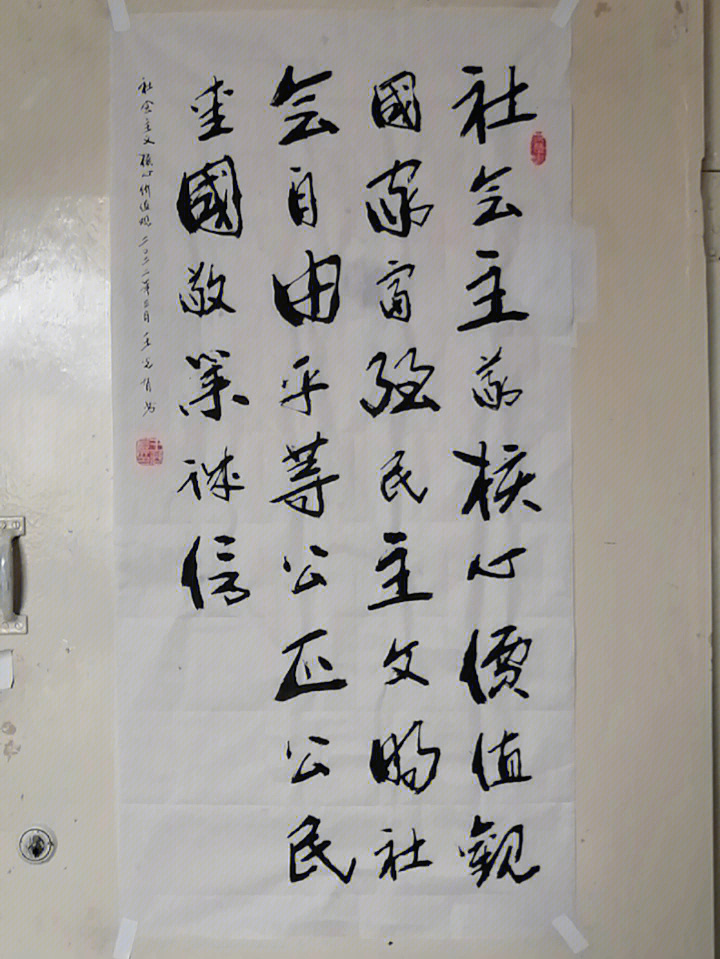 社会主義核心價值觀
國家富强民主文明社
会自由平等公正公民
爱國敬業誠信
社会主义核心价值观 二〇二二年三月 书